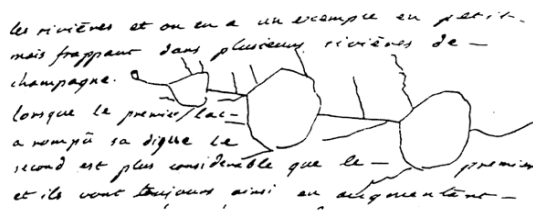 les rivières et on en a un exemple en petit-
mais frappant dans plusieurs rivières de -
champagne.
lorsque le premier lac -
a rompü sa digue le
second est plus considerable que le - premier
et ils vont toujours ainsi en augmentant -